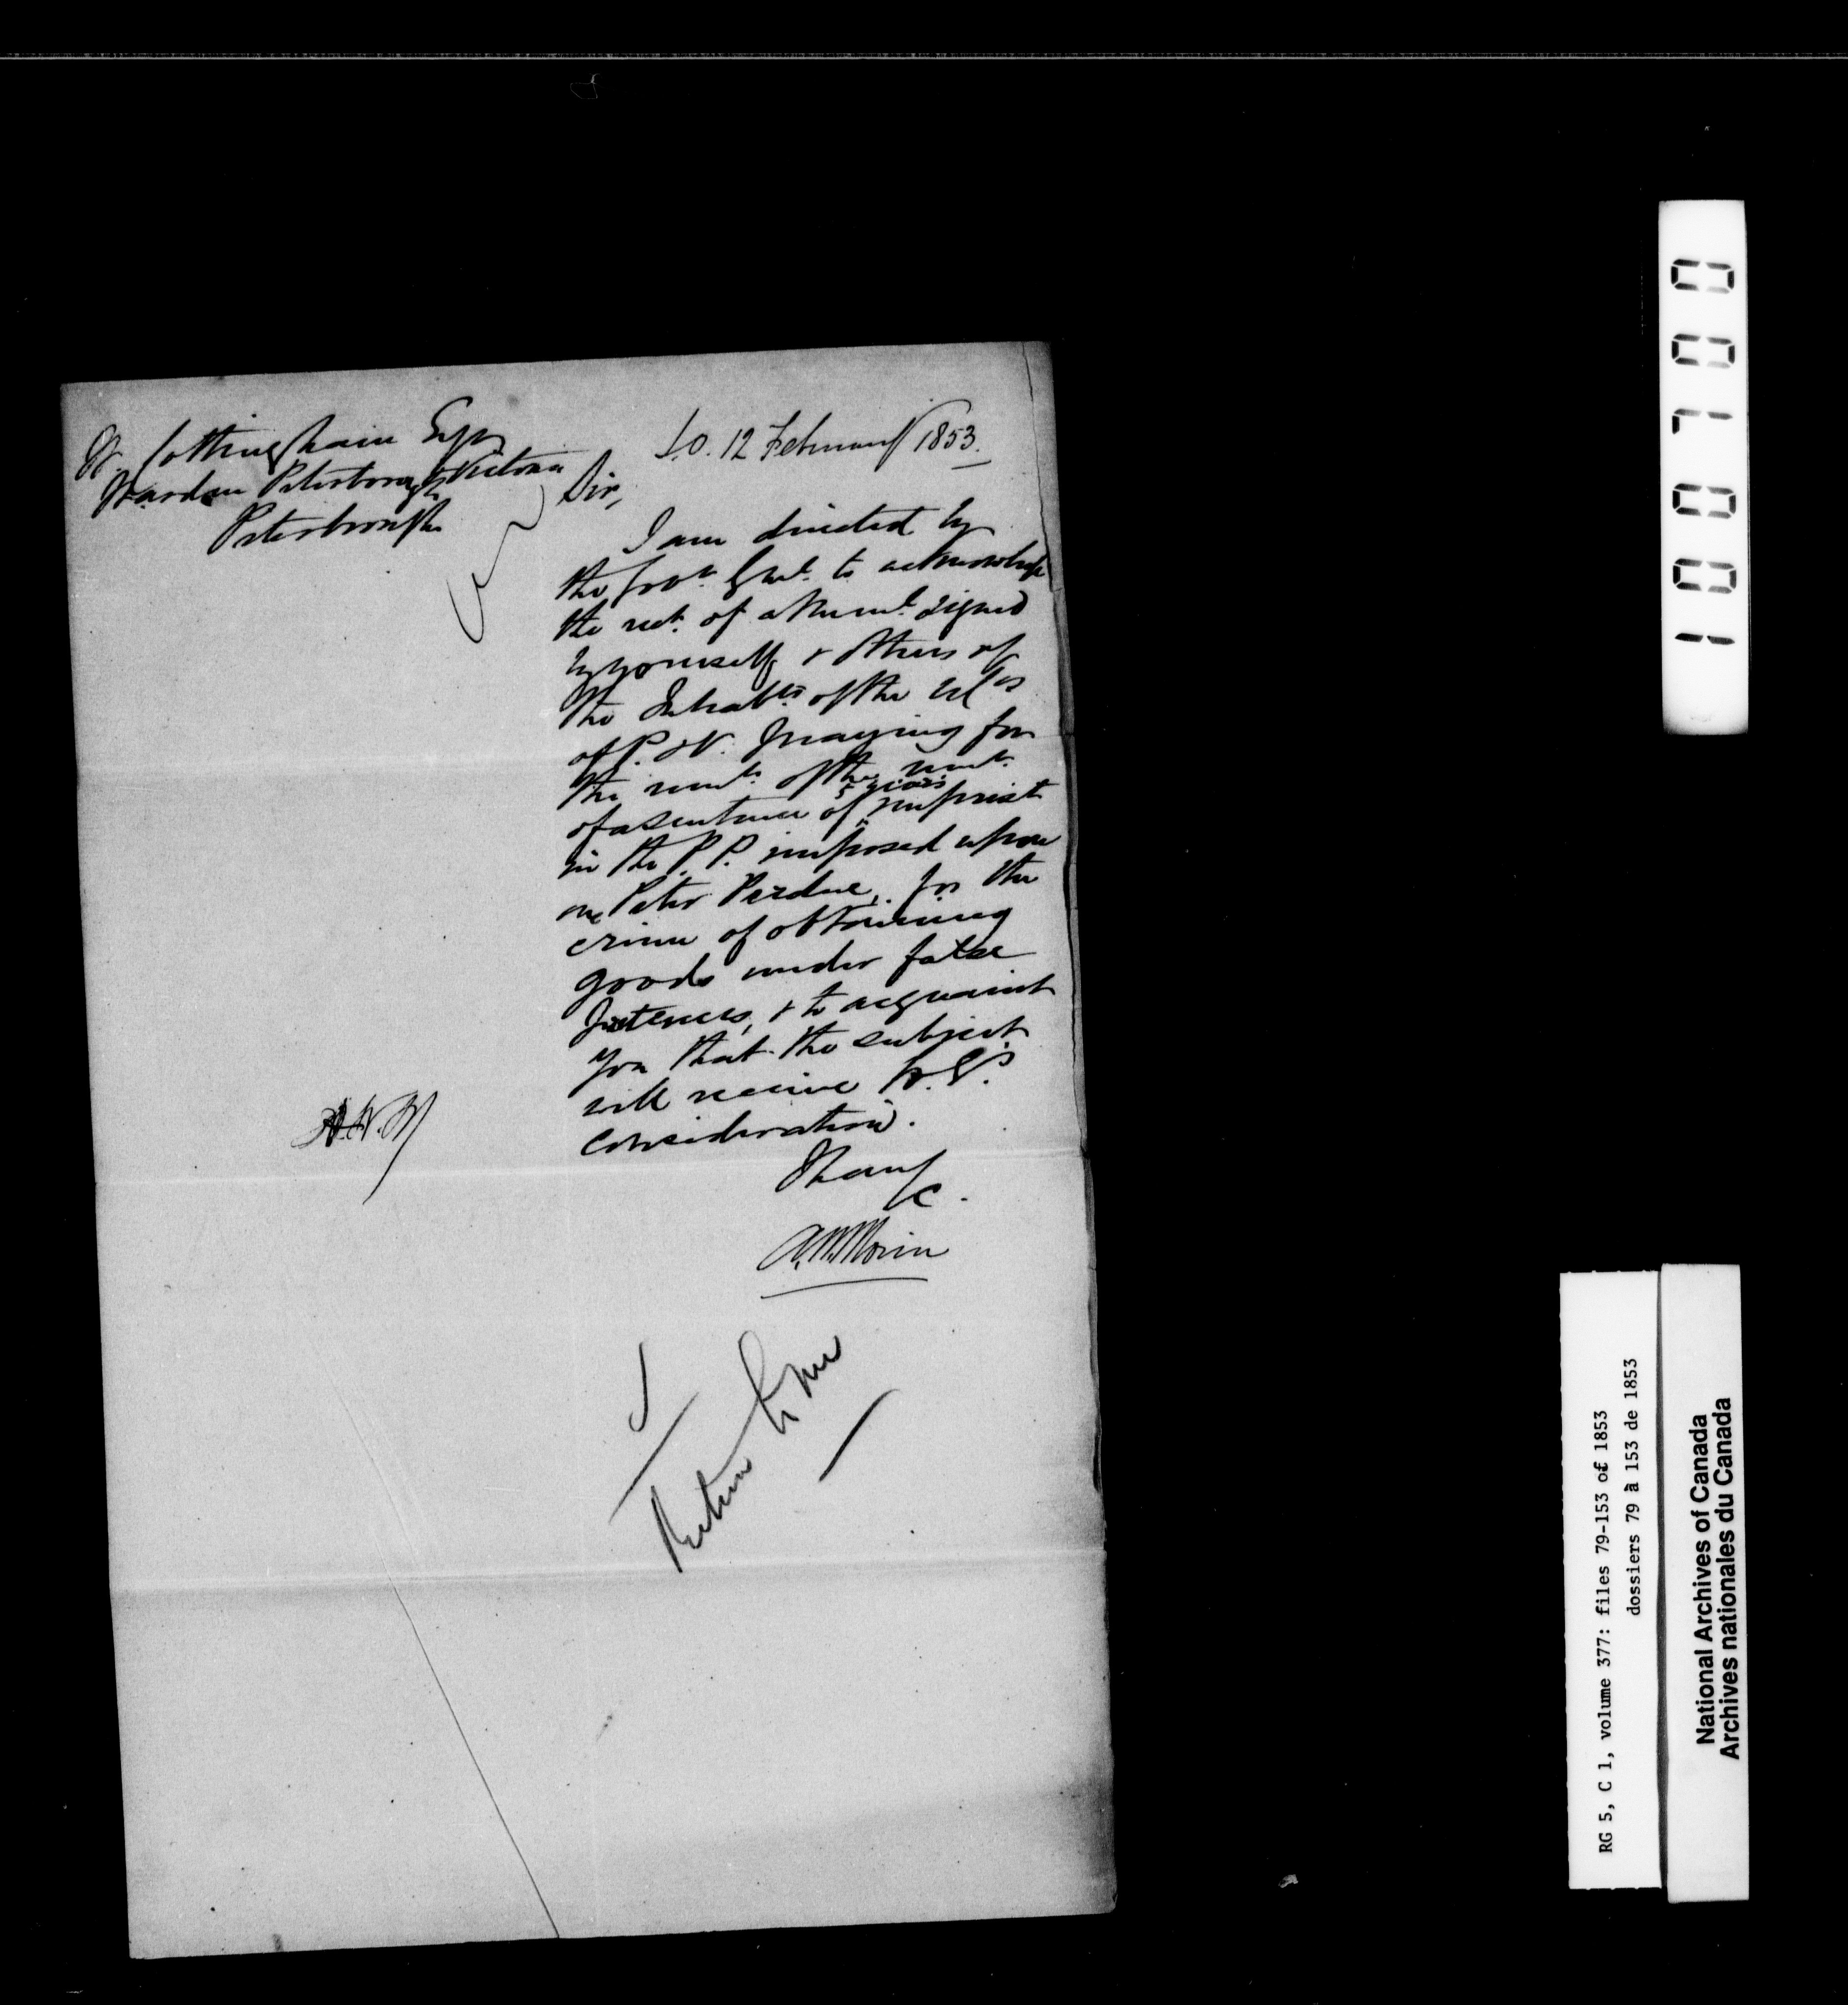 W. Cottingham Esqr
Warden Peterborough & Victoria
Peterborough
S.O. 12 February 1853.
Sir,
I am directed by
the Govr. Genl. to acknowledge
the rect. of a Meml. signed
by yourself & others of
the Inhabts. of the
of P. & V. praying for
the remt. of the
of a sentence of 5 years imprist
in the P.P. imposed upon
one Peter Perdue, for the
crime of obtaining
goods under false
pretences, & to acquaint
you that the subject
will receive H.E's.
consideration.
I have
&c.
A.N. Morin
Return to me
RG 5, C 1, volume 377: files 79-153 of 1853
dossiers 79 à 153 de 1853
National Archives of Canada
Archives nationales du Canada